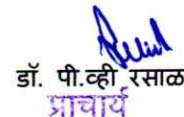 डॉ. पी.व्ही रसाळ
प्राचार्य